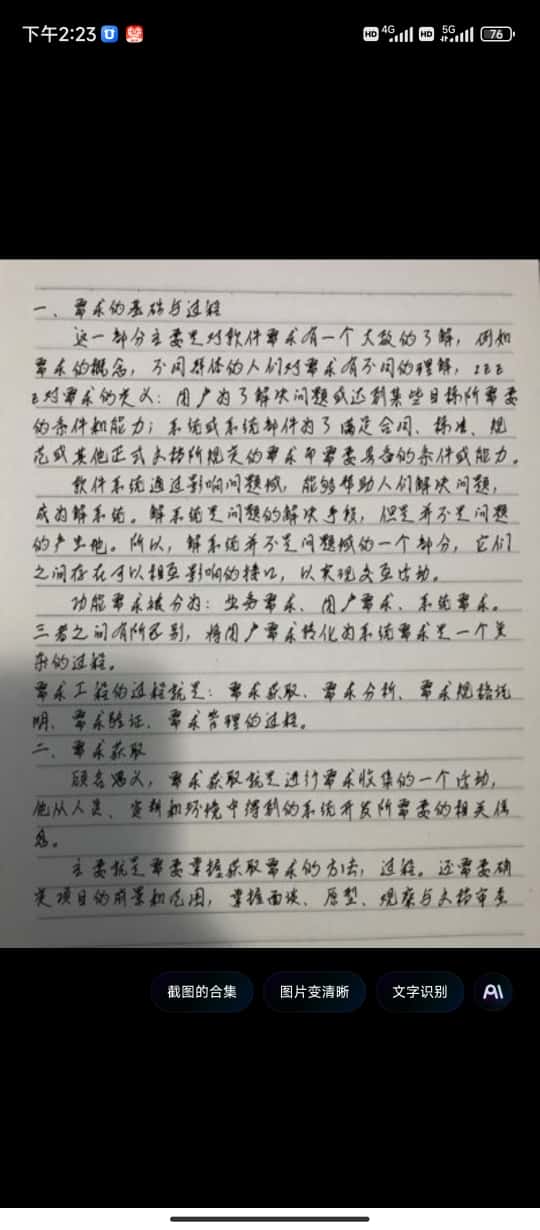 下午2:23
HD 4G HD 5G 76
一、需求的基础与过程
这一部分主要是对软件需求有一个大致的了解，例如
需求的概念，不同群体的人们对需求有不同的理解，IEE
E对需求的定义：用户为了解决问题或达到某些目标所需要
的条件和能力；系统或系统部件为了满足合同、标准、规
范或其他正式文档所规定的需求而需要具备的条件或能力。
软件系统通过影响问题域，能够帮助人们解决问题，
成为解系统。解系统是问题的解决手段，但是并不是问题
的产生地。所以，解系统并不是问题域的一个部分，它们
之间存在可以相互影响的接口，以实现交互活动。
功能需求被分为：业务需求、用户需求、系统需求。
三者之间有所区别，将用户需求转化为系统需求是一个复
杂的过程。
需求工程的过程就是：需求获取、需求分析、需求规格说
明、需求验证、需求管理的过程。
二、需求获取
顾名思义，需求获取就是进行需求收集的一个活动，
他从人员、资料和环境中得到的系统开发所需要的相关信
息。
主要就是需要掌握获取需求的方法，过程。还需要确
定项目的前景和范围，掌握面谈、原型、观察与文档审查
截图的合集
图片变清晰
文字识别
AI